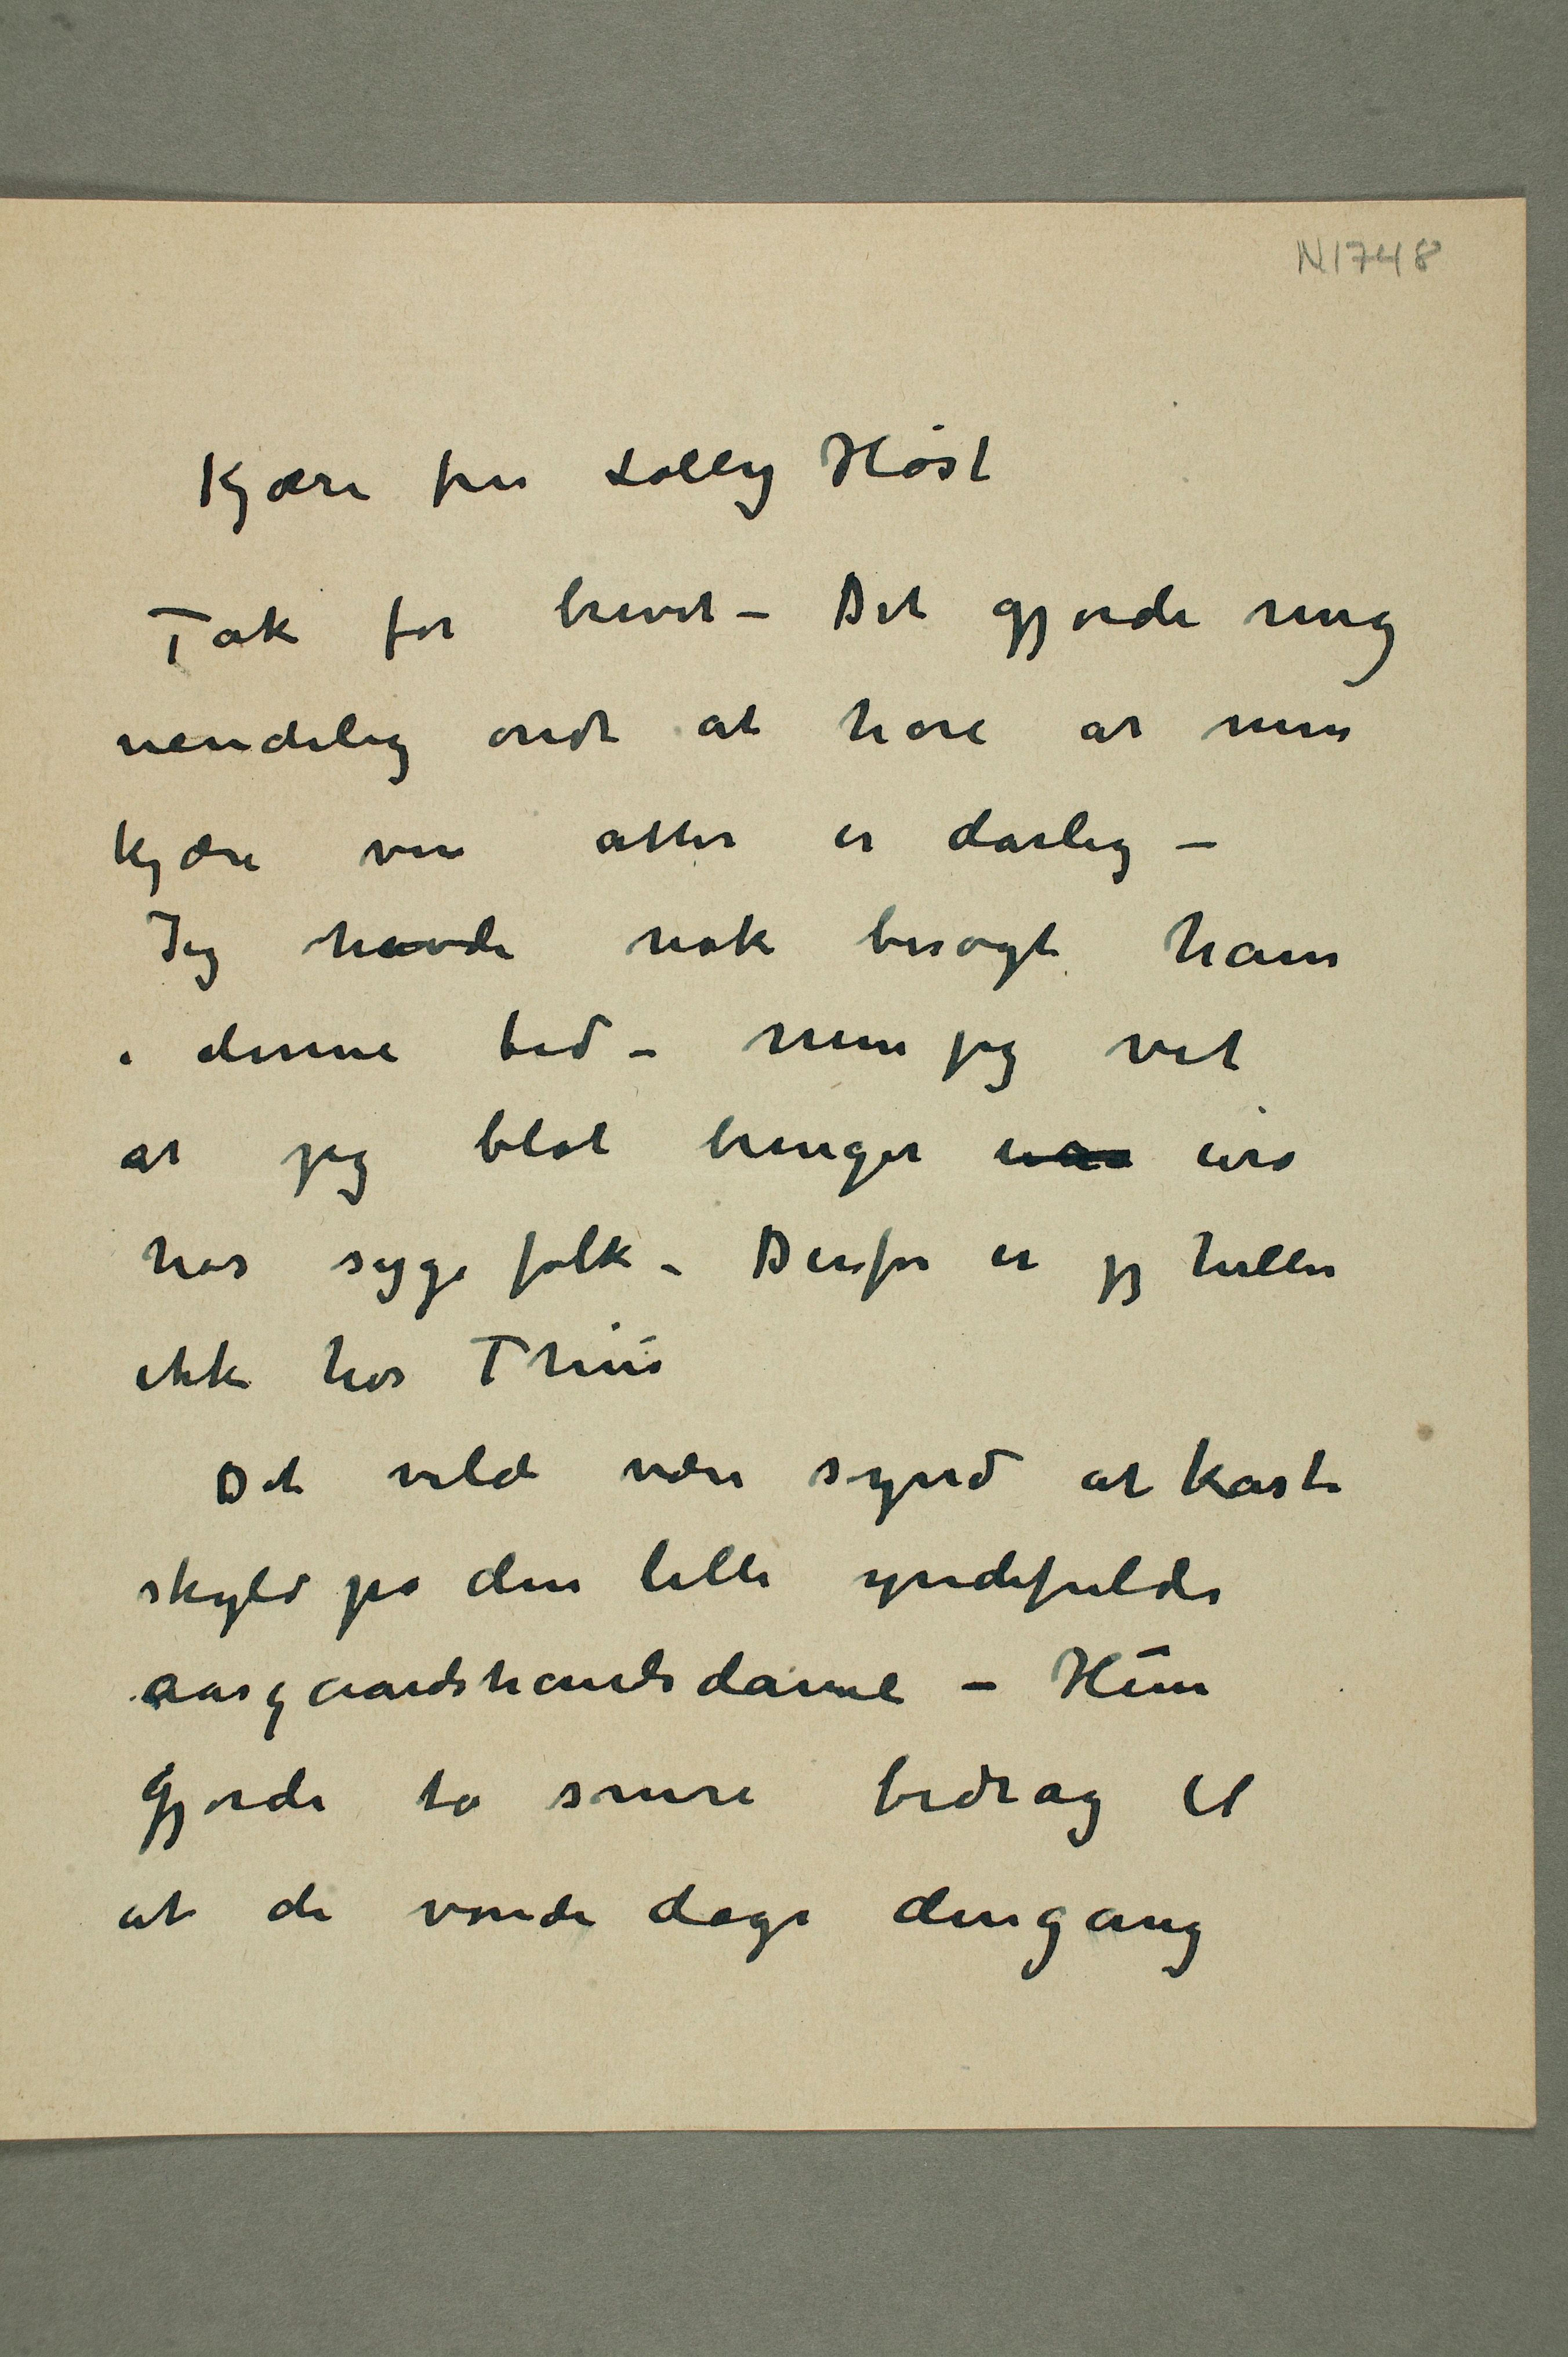 N1748
Kjære fru Lolly Høst
Tak for brevet – Det gjorde mig
uendelig ondt at høre at min
kjære ven atter er dårlig –
Jeg havde nok besøgt ham
i denne tid – men jeg vet
at jeg blot bringer uro
hos syge folk – Derfor er jeg heller
ikke hos Thiis
Det vilde være synd at kaste
skyld på den lille yndefulde
aasgaardstrandsdame – Hun
gjorde to smre bedrag til
at de vonde dage dengang